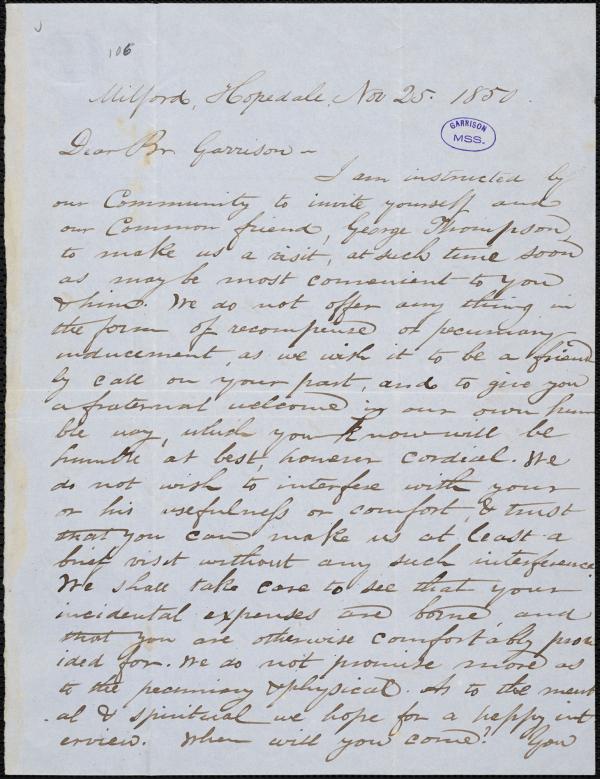 106
Milford, Hopedale, Nov 25. 1850.
GARRISON
MSS.
Dear Br. Garrison -
I am instructed by
our Community to invite yourself and
our Common friend, George Thompson,
to make us a visit, at such time soon
as may be most convenient to you
& him. We do not offer any thing in
the form of recompense or pecuniary
inducement, as we wish it to be a friend
ly call on your part, and to give you
a fraternal welcome in our own hum
ble way, which you know will be
humble at best, however cordial. We
do not wish to interfere with your
or his usefulness or comfort, & trust
that you can make us at least a
brief visit without any such interference.
We shall take care to see that your
incidental expenses are borne, and
that you are otherwise comfortably prov
ided for. We do not promise more as
to the pecuniary & physical. As to the ment
al & spiritual we hope for a happy int
erview. When will you come? You